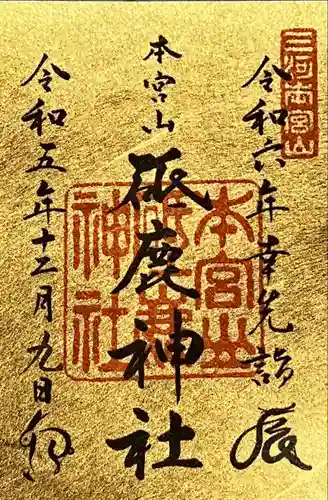 三河本宮山
令和六年幸先詣 辰
本宮山
砥鹿神社
令和五年十二月九日